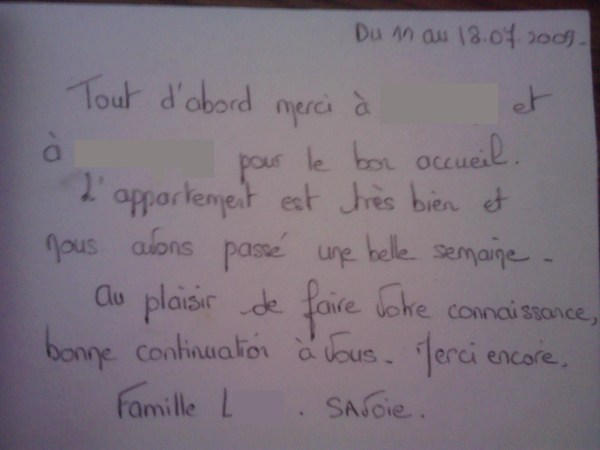 Du 11 au 18.07.2009.
Tout d'abord merci à et
à pour le bon accueil.
L'appartement est très bien et
nous avons passé une belle semaine.
Au plaisir de faire votre connaissance,
bonne continuation à vous. Merci encore.
Famille L . SAVoie.